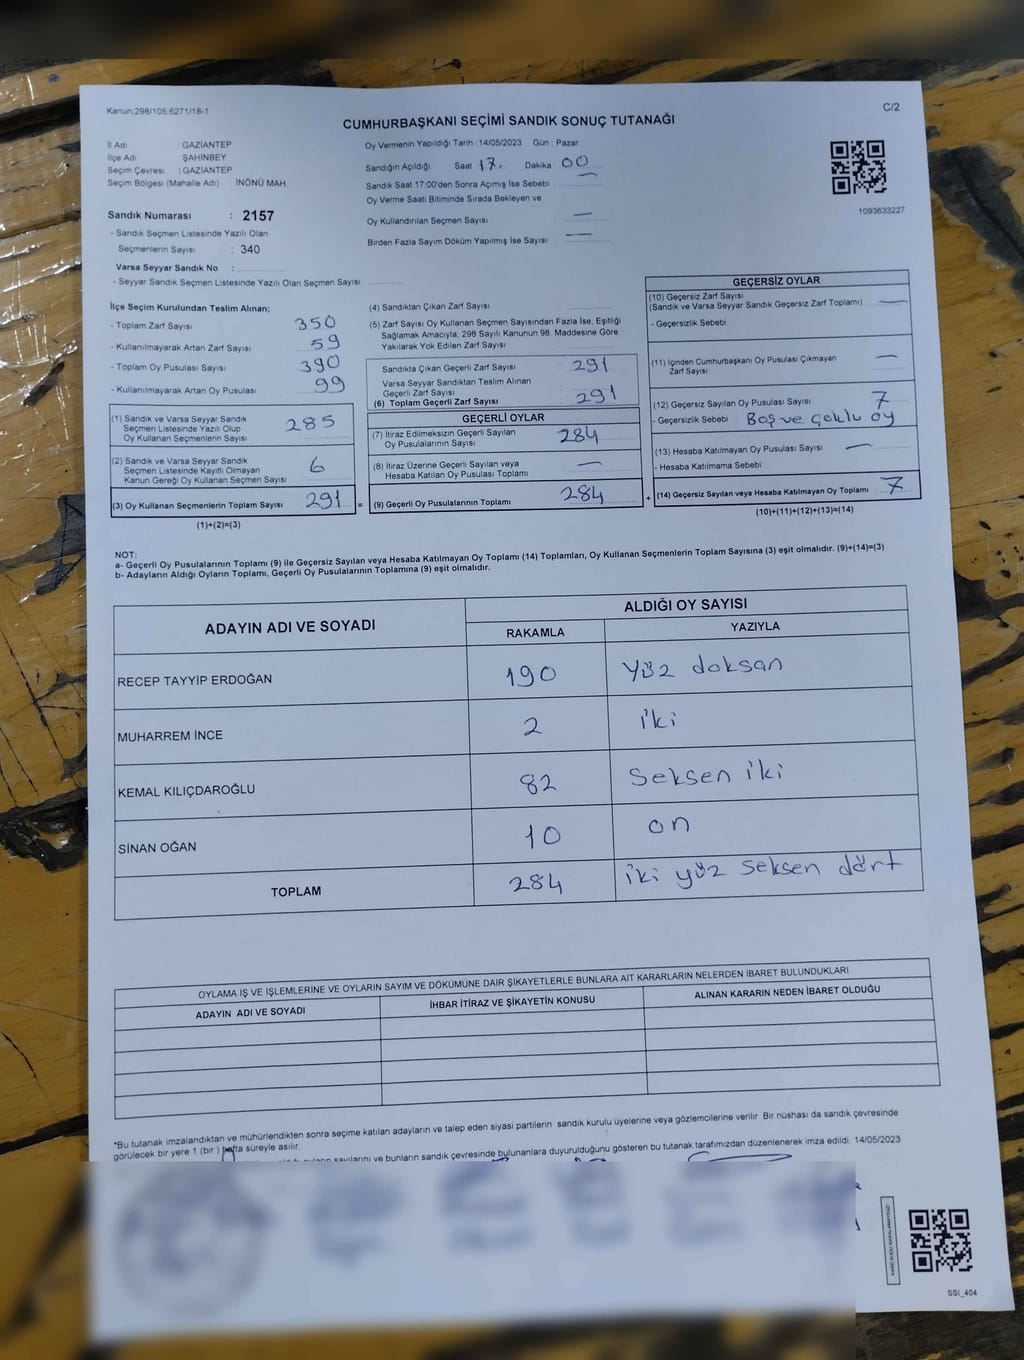 Kanun:298/105;6271/18-1
C/2
CUMHURBAŞKANI SEÇİMİ SANDIK SONUÇ TUTANAĞI
İl Adı : GAZİANTEP
İlçe Adı : ŞAHİNBEY
Seçim Çevresi : GAZİANTEP
Seçim Bölgesi (Mahalle Adı) İNÖNÜ MAH.
Sandık Numarası : 2157
- Sandık Seçmen Listesinde Yazılı Olan
Seçmenlerin Sayısı : 340
Varsa Seyyar Sandık No :
- Seyyar Sandık Seçmen Listesinde Yazılı Olan Seçmen Sayısı
Oy Vermenin Yapıldığı Tarih : 14/05/2023 Gün : Pazar
Sandığın Açıldığı Saat 17. Dakika 00
Sandık Saat 17:00'den Sonra Açılmış İse Sebebi : —
Oy Verme Saati Bitiminde Sırada Bekleyen ve
Oy Kullandırılan Seçmen Sayısı : —
Birden Fazla Sayım Döküm Yapılmış İse Sayısı : —
1093633227
İlçe Seçim Kurulundan Teslim Alınan;
- Toplam Zarf Sayısı : 350
- Kullanılmayarak Artan Zarf Sayısı : 59
- Toplam Oy Pusulası Sayısı : 390
- Kullanılmayarak Artan Oy Pusulası : 99
(1) Sandık ve Varsa Seyyar Sandık
Seçmen Listesinde Yazılı Olup
Oy Kullanan Seçmenlerin Sayısı 285
(2) Sandık ve Varsa Seyyar Sandık
Seçmen Listesinde Kayıtlı Olmayan
Kanun Gereği Oy Kullanan Seçmen Sayısı 6
(3) Oy Kullanan Seçmenlerin Toplam Sayısı 291
(1)+(2)=(3)
=
(4) Sandıktan Çıkan Zarf Sayısı :
(5) Zarf Sayısı Oy Kullanan Seçmen Sayısından Fazla İse, Eşitliği
Sağlamak Amacıyla; 298 Sayılı Kanunun 98. Maddesine Göre
Yakılarak Yok Edilen Zarf Sayısı
Sandıkta Çıkan Geçerli Zarf Sayısı : 291
Varsa Seyyar Sandıktan Teslim Alınan
Geçerli Zarf Sayısı
(6) Toplam Geçerli Zarf Sayısı : 291
GEÇERLİ OYLAR
(7) İtiraz Edilmeksizin Geçerli Sayılan
Oy Pusulalarının Sayısı 284
(8) İtiraz Üzerine Geçerli Sayılan veya
Hesaba Katılan Oy Pusulası Toplamı —
(9) Geçerli Oy Pusulalarının Toplamı 284
+
GEÇERSİZ OYLAR
(10) Geçersiz Zarf Sayısı
(Sandık ve Varsa Seyyar Sandık Geçersiz Zarf Toplamı) —
- Geçersizlik Sebebi :
(11) İçinden Cumhurbaşkanı Oy Pusulası Çıkmayan
Zarf Sayısı —
(12) Geçersiz Sayılan Oy Pusulası Sayısı 7
- Geçersizlik Sebebi : Boş ve çoklu oy
(13) Hesaba Katılmayan Oy Pusulası Sayısı —
- Hesaba Katılmama Sebebi
(14) Geçersiz Sayılan veya Hesaba Katılmayan Oy Toplamı 7
(10)+(11)+(12)+(13)=(14)
NOT:
a- Geçerli Oy Pusulalarının Toplamı (9) ile Geçersiz Sayılan veya Hesaba Katılmayan Oy Toplamı (14) Toplamları, Oy Kullanan Seçmenlerin Toplam Sayısına (3) eşit olmalıdır. (9)+(14)=(3)
b- Adayların Aldığı Oyların Toplamı, Geçerli Oy Pusulalarının Toplamına (9) eşit olmalıdır.
ADAYIN ADI VE SOYADI
ALDIĞI OY SAYISI
RAKAMLA YAZIYLA
RECEP TAYYİP ERDOĞAN 190 yüz doksan
MUHARREM İNCE 2 iki
KEMAL KILIÇDAROĞLU 82 Seksen iki
SİNAN OĞAN 10 on
TOPLAM 284 iki yüz seksen dört
OYLAMA İŞ VE İŞLEMLERİNE VE OYLARIN SAYIM VE DÖKÜMÜNE DAİR ŞİKAYETLERLE BUNLARA AİT KARARLARIN NELERDEN İBARET BULUNDUKLARI
ADAYIN ADI VE SOYADI İHBAR İTİRAZ VE ŞİKAYETİN KONUSU ALINAN KARARIN NEDEN İBARET OLDUĞU
*Bu tutanak imzalandıktan ve mühürlendikten sonra seçime katılan adayların ve talep eden siyasi partilerin sandık kurulu üyelerine veya gözlemcilerine verilir. Bir nüshası da sandık çevresinde
görülecek bir yere 1 (bir) hafta süreyle asılır.
sayılarını ve bunların sandık çevresinde bulunanlara duyurulduğunu gösteren bu tutanak tarafımızdan düzenlenerek imza edildi. 14/05/2023
SSI_404